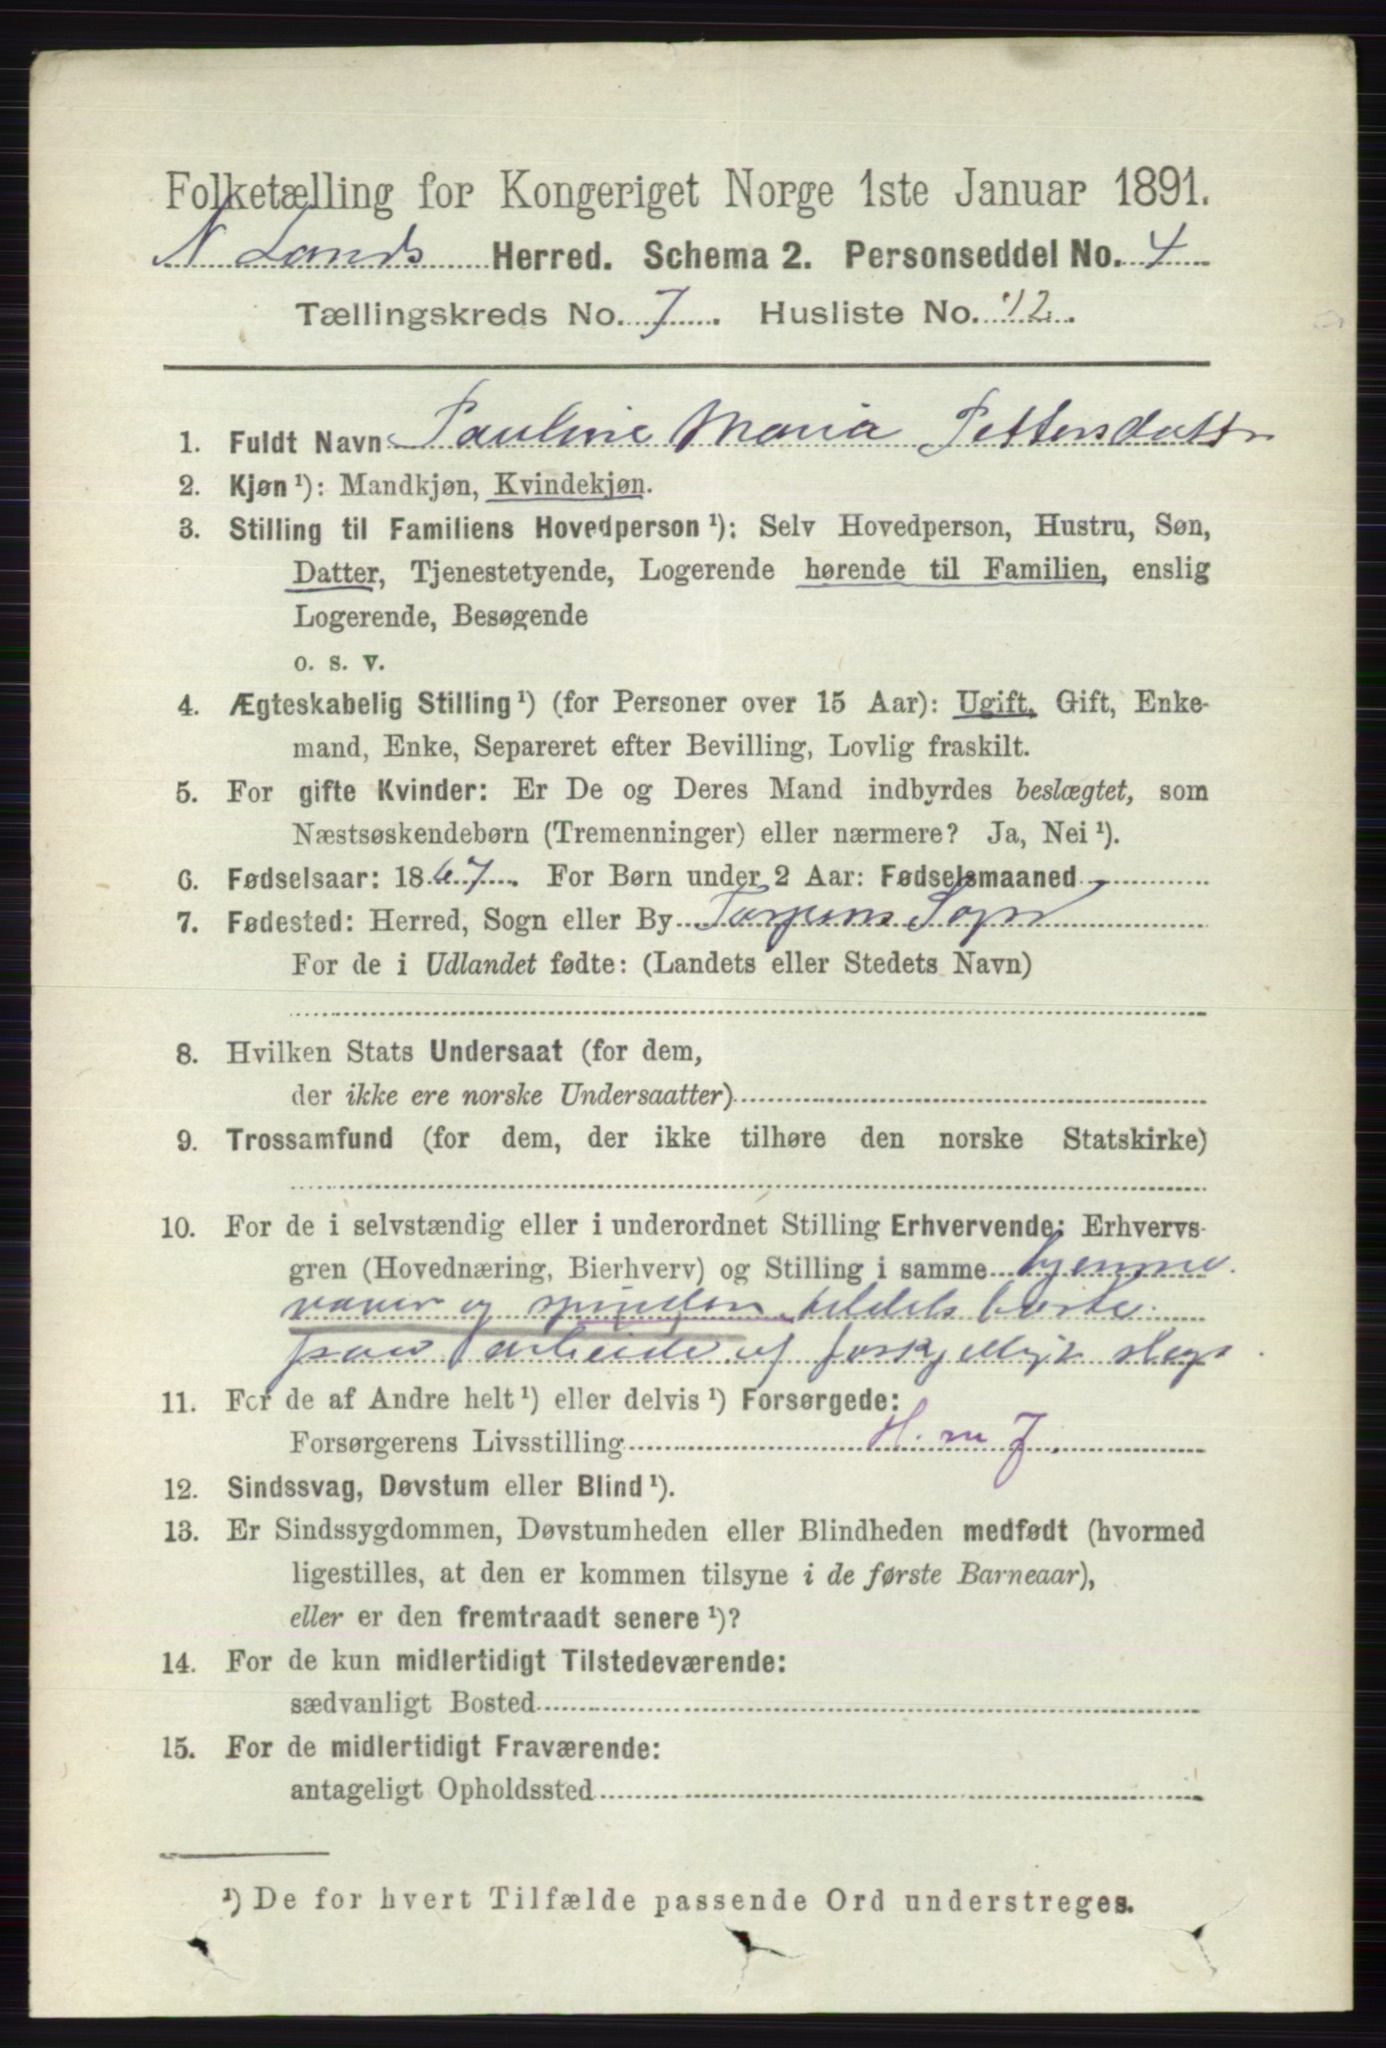 Folketælling for Kongeriget Norge 1ste Januar 1891.
N Lands Herred. Schema 2. Personseddel No. 4
Tællingskreds No. 7. Husliste No. 12.
1. Fuldt Navn Pauline Maria Pettersdatter
2. Kjøn ¹): Mandkjøn, Kvindekjøn.
3. Stilling til Familiens Hovedperson ¹): Selv Hovedperson, Hustru, Søn,
Datter, Tjenestetyende, Logerende hørende til Familien, enslig
Logerende, Besøgende
o. s. v.
4. Ægteskabelig Stilling ¹) (for Personer over 15 Aar): Ugift, Gift, Enke-
mand, Enke, Separeret efter Bevilling, Lovlig fraskilt.
5. For gifte Kvinder: Er De og Deres Mand indbyrdes beslægtet, som
Næstsøskendebørn (Tremenninger) eller nærmere? Ja, Nei ¹).
6. Fødselsaar: 1867. For Børn under 2 Aar: Fødselsmaaned
7. Fødested: Herred, Sogn eller By Torpens Sogn
For de i Udlandet fødte: (Landets eller Stedets Navn)
8. Hvilken Stats Undersaat (for dem,
der ikke ere norske Undersaatter)
9. Trossamfund (for dem, der ikke tilhøre den norske Statskirke)
10. For de i selvstændig eller i underordnet Stilling Erhvervende: Erhvervs-
gren (Hovednæring, Bierhverv) og Stilling i samme hjemme
væver og spinder tildels borte
paa arbeide af forskjelligt slags.
11. For de af Andre helt ¹) eller delvis ¹) Forsørgede:
Forsørgerens Livsstilling H. m J.
12. Sindssvag, Døvstum eller Blind ¹).
13. Er Sindssygdommen, Døvstumheden eller Blindheden medfødt (hvormed
ligestilles, at den er kommen tilsyne i de første Barneaar),
eller er den fremtraadt senere ¹)?
14. For de kun midlertidigt Tilstedeværende:
sædvanligt Bosted
15. For de midlertidigt Fraværende:
antageligt Opholdssted
¹) De for hvert Tilfælde passende Ord understreges.